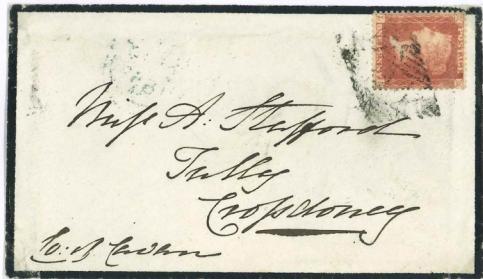 Miss A. Stafford
Tully
Crossdoney
Co. Cavan